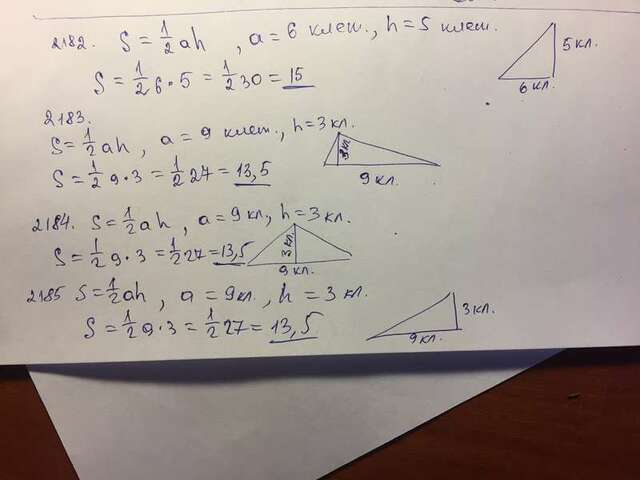 2182 S = 1/2 ah, a = 6 клет., h = 5 клет.
S = 1/2 6 · 5 = 1/2 30 = 15
6 кл.
5 кл.
2183.
S = 1/2 ah, a = 9 клет., h = 3 кл.
S = 1/2 9 · 3 = 1/2 27 = 13,5
3 кл.
9 кл.
2184. S = 1/2 ah, a = 9 кл, h = 3 кл.
S = 1/2 9 · 3 = 1/2 27 = 13,5
3 кл.
9 кл.
2185 S = 1/2 ah, a = 9 кл, h = 3 кл.
S = 1/2 9 · 3 = 1/2 27 = 13,5
9 кл.
3 кл.